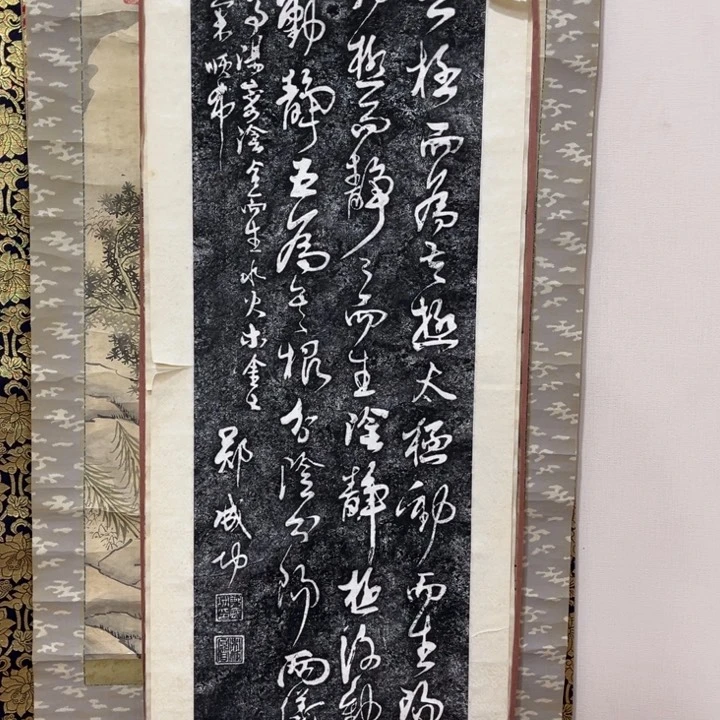 極而為極太極動而生陽
極而靜々而生陰靜極復動
動靜互為其根分陰分陽兩儀
焉陽變陰合而生水火木金土
氣順布
鄭成功